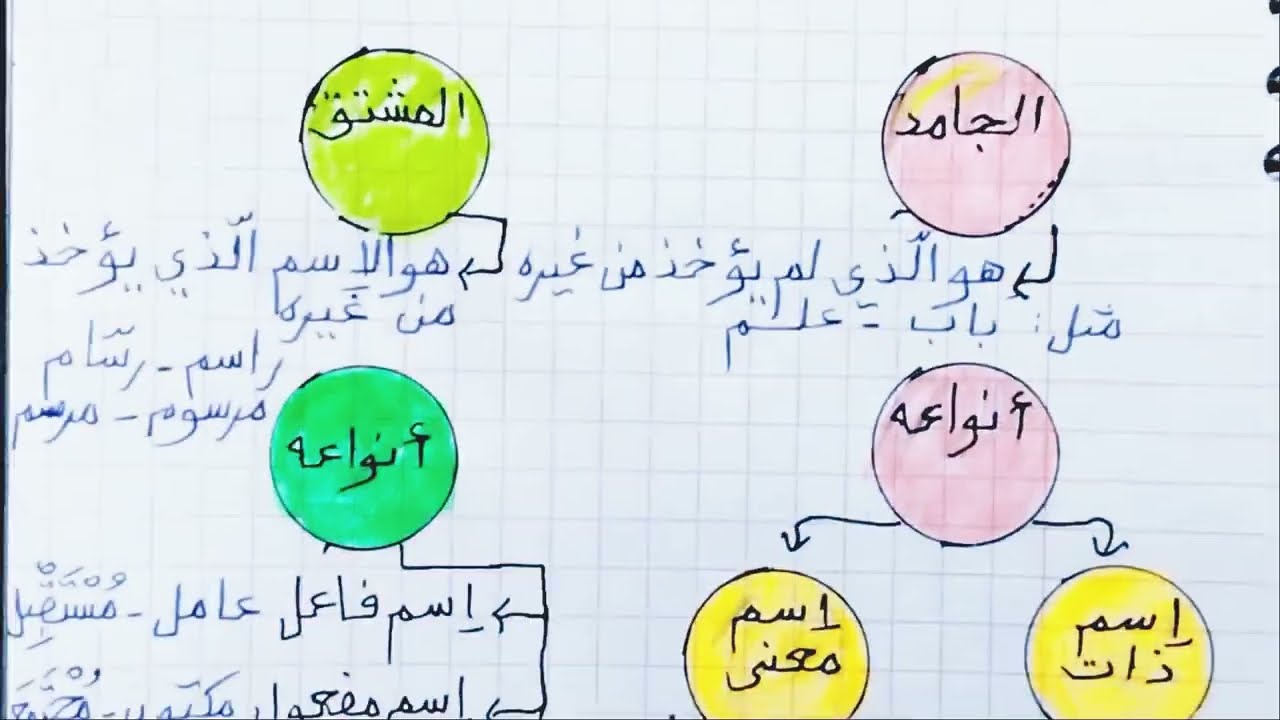 الجامد
هو الّذي لم يؤخذ من غيره
مثل: باب - علم
أنواعه
اِسم
ذات
اِسم
معنى
المشتق
هو الاِسم الّذي يؤخذ
من غيره
راسم - رسّام
مرسوم - مرسم
أنواعه
اِسم فاعل عامل - مُسْتَقْبِل
اِسم مفعول مكتوب